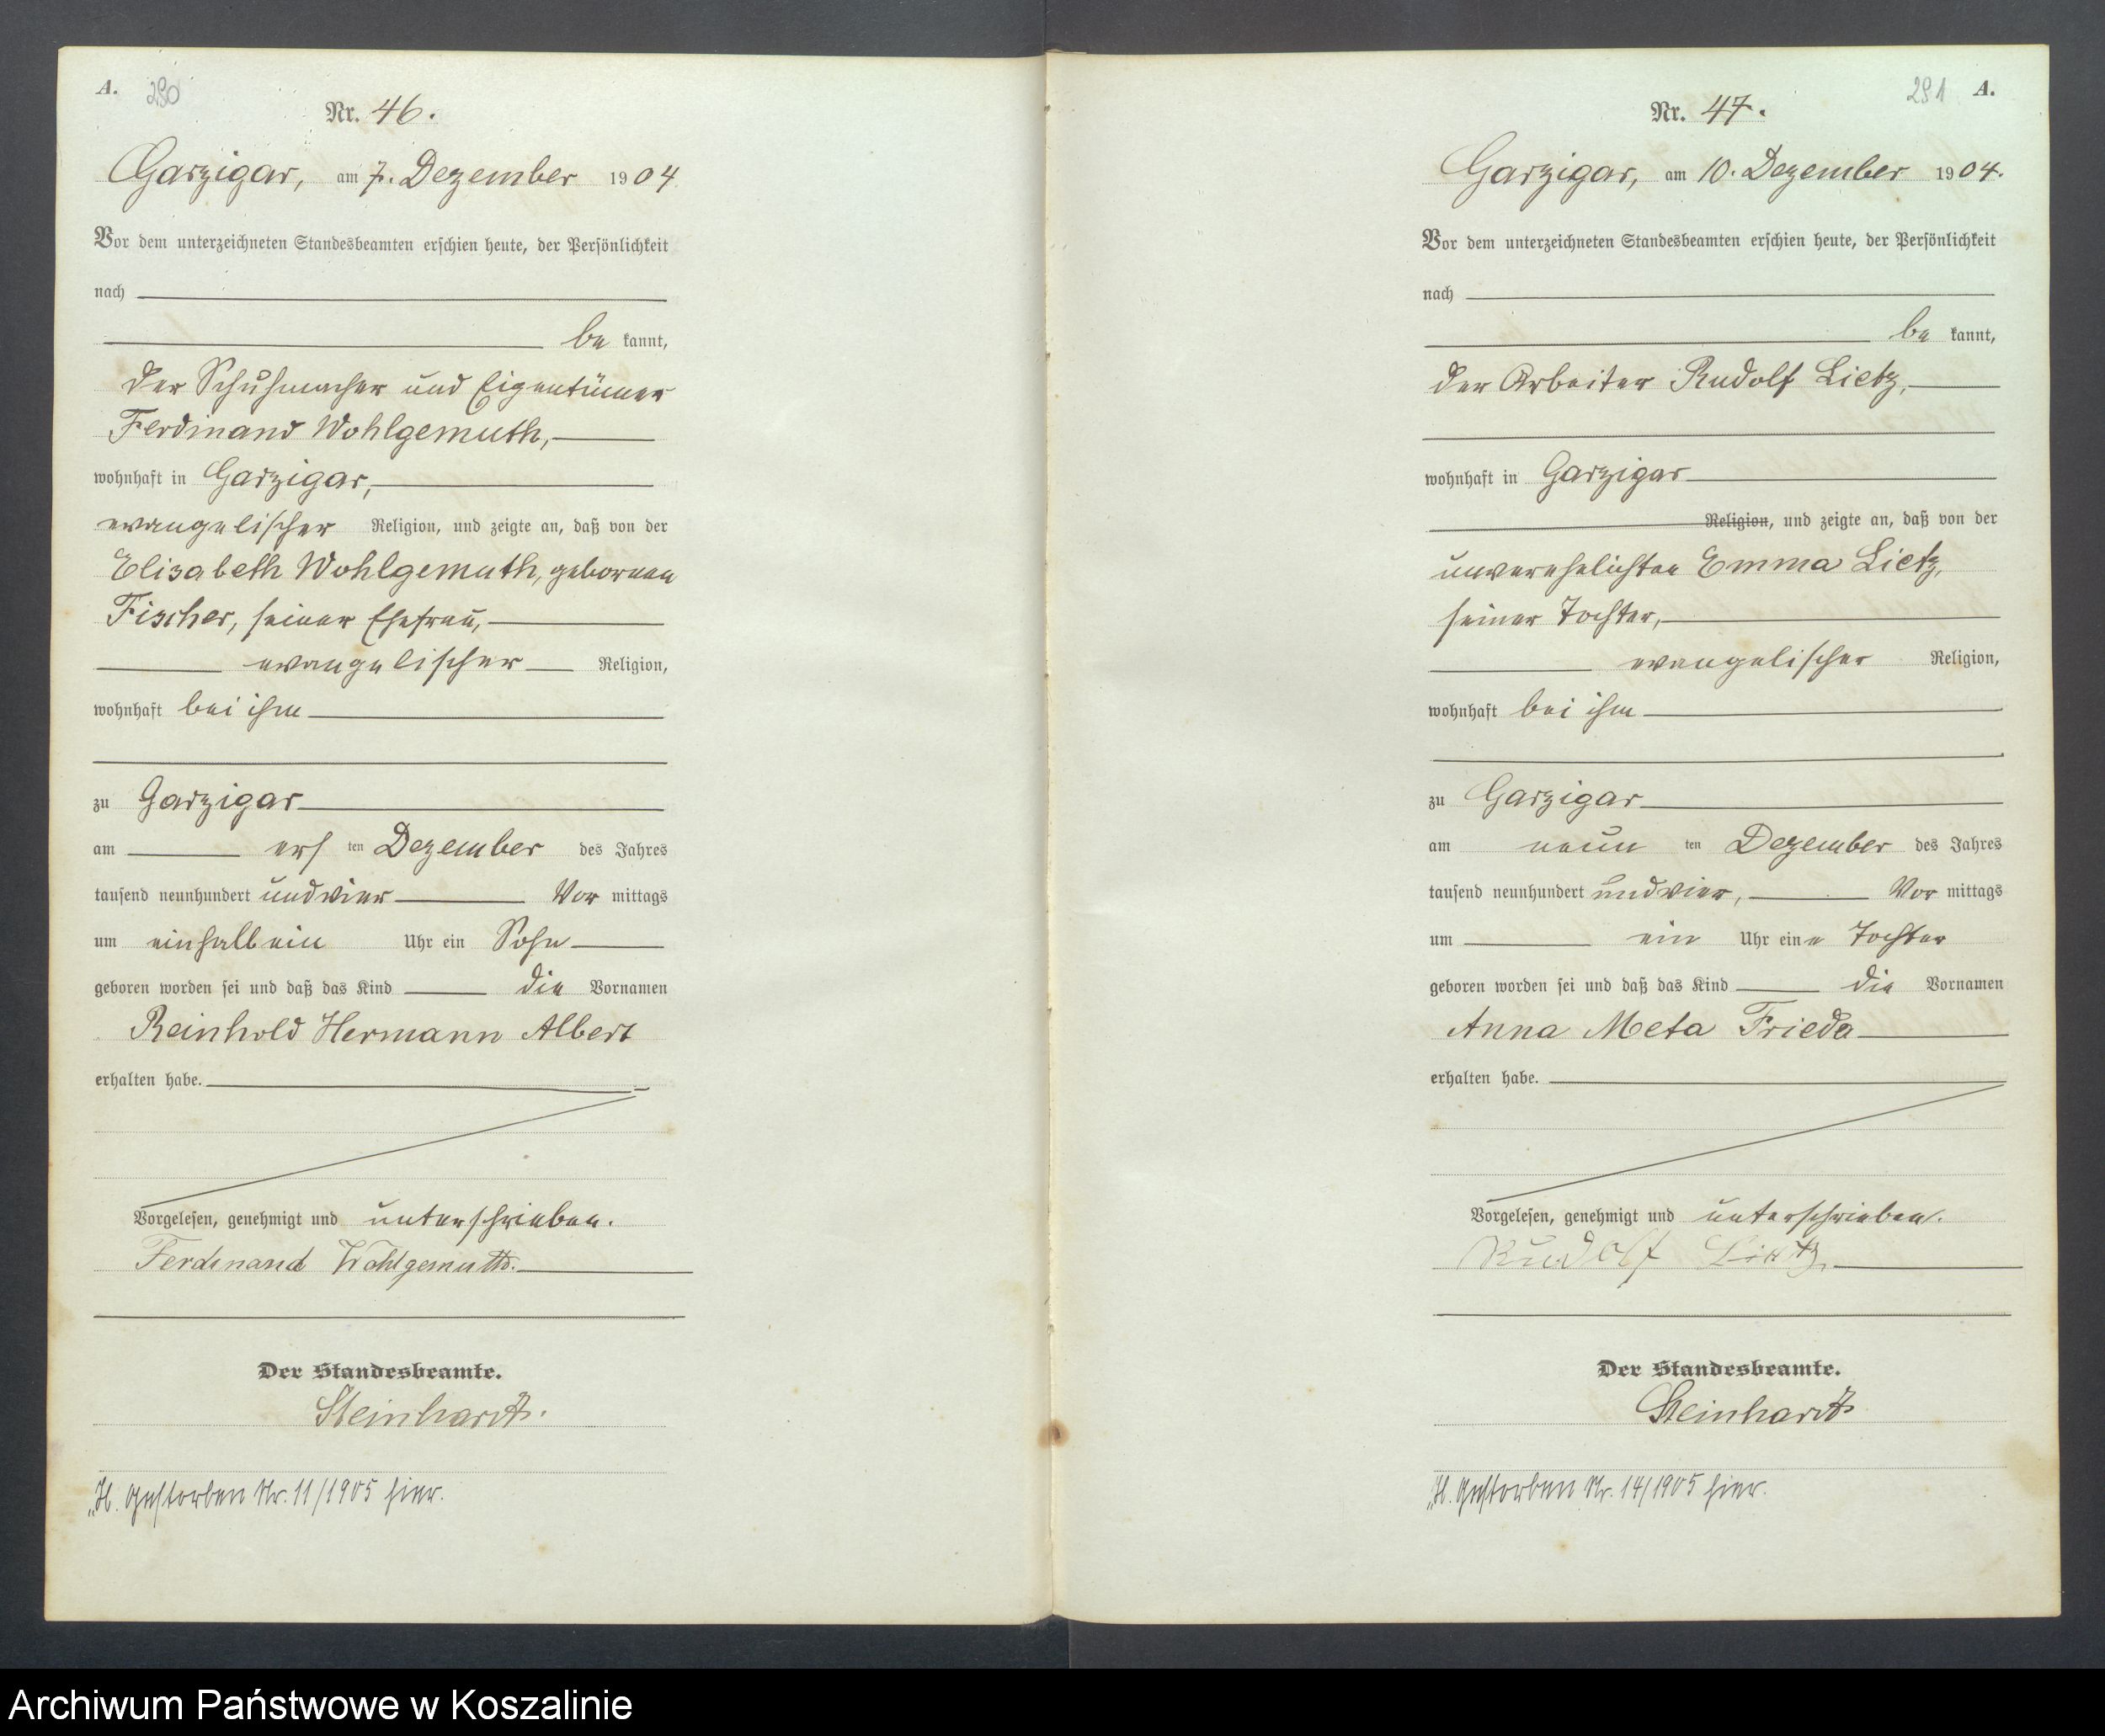 A. 290
Nr. 46.
Garzigar, am 7. Dezember 1904
Vor dem unterzeichneten Standesbeamten erschien heute, der Persönlichkeit
nach
be kannt,
der Schuhmacher und Eigentümer
Ferdinand Wohlgemuth,
wohnhaft in Garzigar,
evangelischer Religion, und zeigte an, daß von der
Elisabeth Wohlgemuth, geborenen
Fischer, seiner Ehefrau,
evangelischer Religion,
wohnhaft bei ihm
zu Garzigar
am ersten Dezember des Jahres
tausend neunhundert und vier Vor mittags
um einhalb ein Uhr ein Sohn
geboren worden sei und daß das Kind die Vornamen
Reinhold Hermann Albert
erhalten habe.
Vorgelesen, genehmigt und unterschrieben.
Ferdinand Wohlgemuth.
Der Standesbeamte.
Steinhardt.
H. Gestorben Nr. 11/1905 hier.
291 A.
Nr. 47.
Garzigar, am 10. Dezember 1904.
Vor dem unterzeichneten Standesbeamten erschien heute, der Persönlichkeit
nach
be kannt,
der Arbeiter Rudolf Lietz,
wohnhaft in Garzigar
Religion, und zeigte an, daß von der
unverehelichten Emma Lietz,
seiner Tochter,
evangelischer Religion,
wohnhaft bei ihm
zu Garzigar
am neunten Dezember des Jahres
tausend neunhundert und vier, Vor mittags
um ein Uhr eine Tochter
geboren worden sei und daß das Kind die Vornamen
Anna Meta Frieda
erhalten habe.
Vorgelesen, genehmigt und unterschrieben.
Rudolf Lietz,
Der Standesbeamte.
Steinhardt
H. Gestorben Nr. 14/1905 hier.
Archiwum Państwowe w Koszalinie